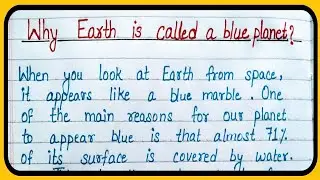 Why Earth is called a blue planet?
When you look at Earth from space,
it appears like a blue marble. One
of the main reasons for our planet
to appear blue is that almost 71%
of its surface is covered by water.